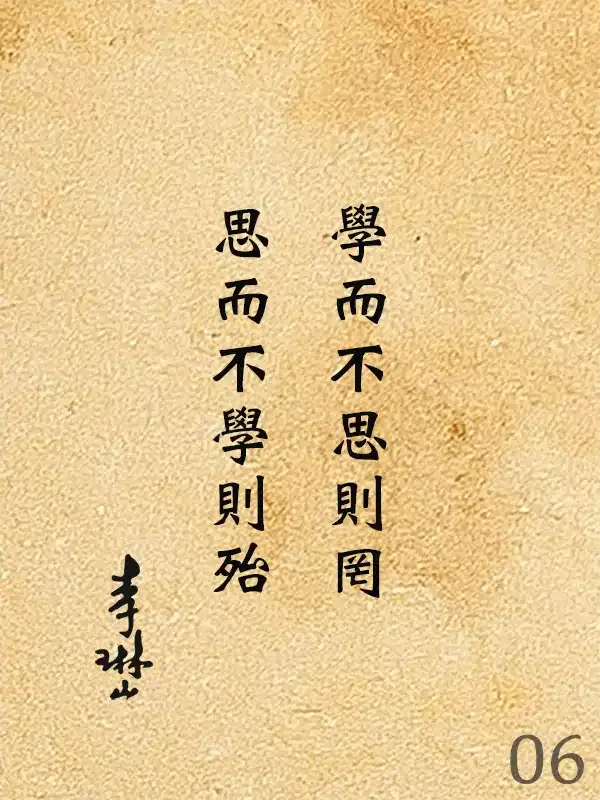 學而不思則罔
思而不學則殆
李琳山
06